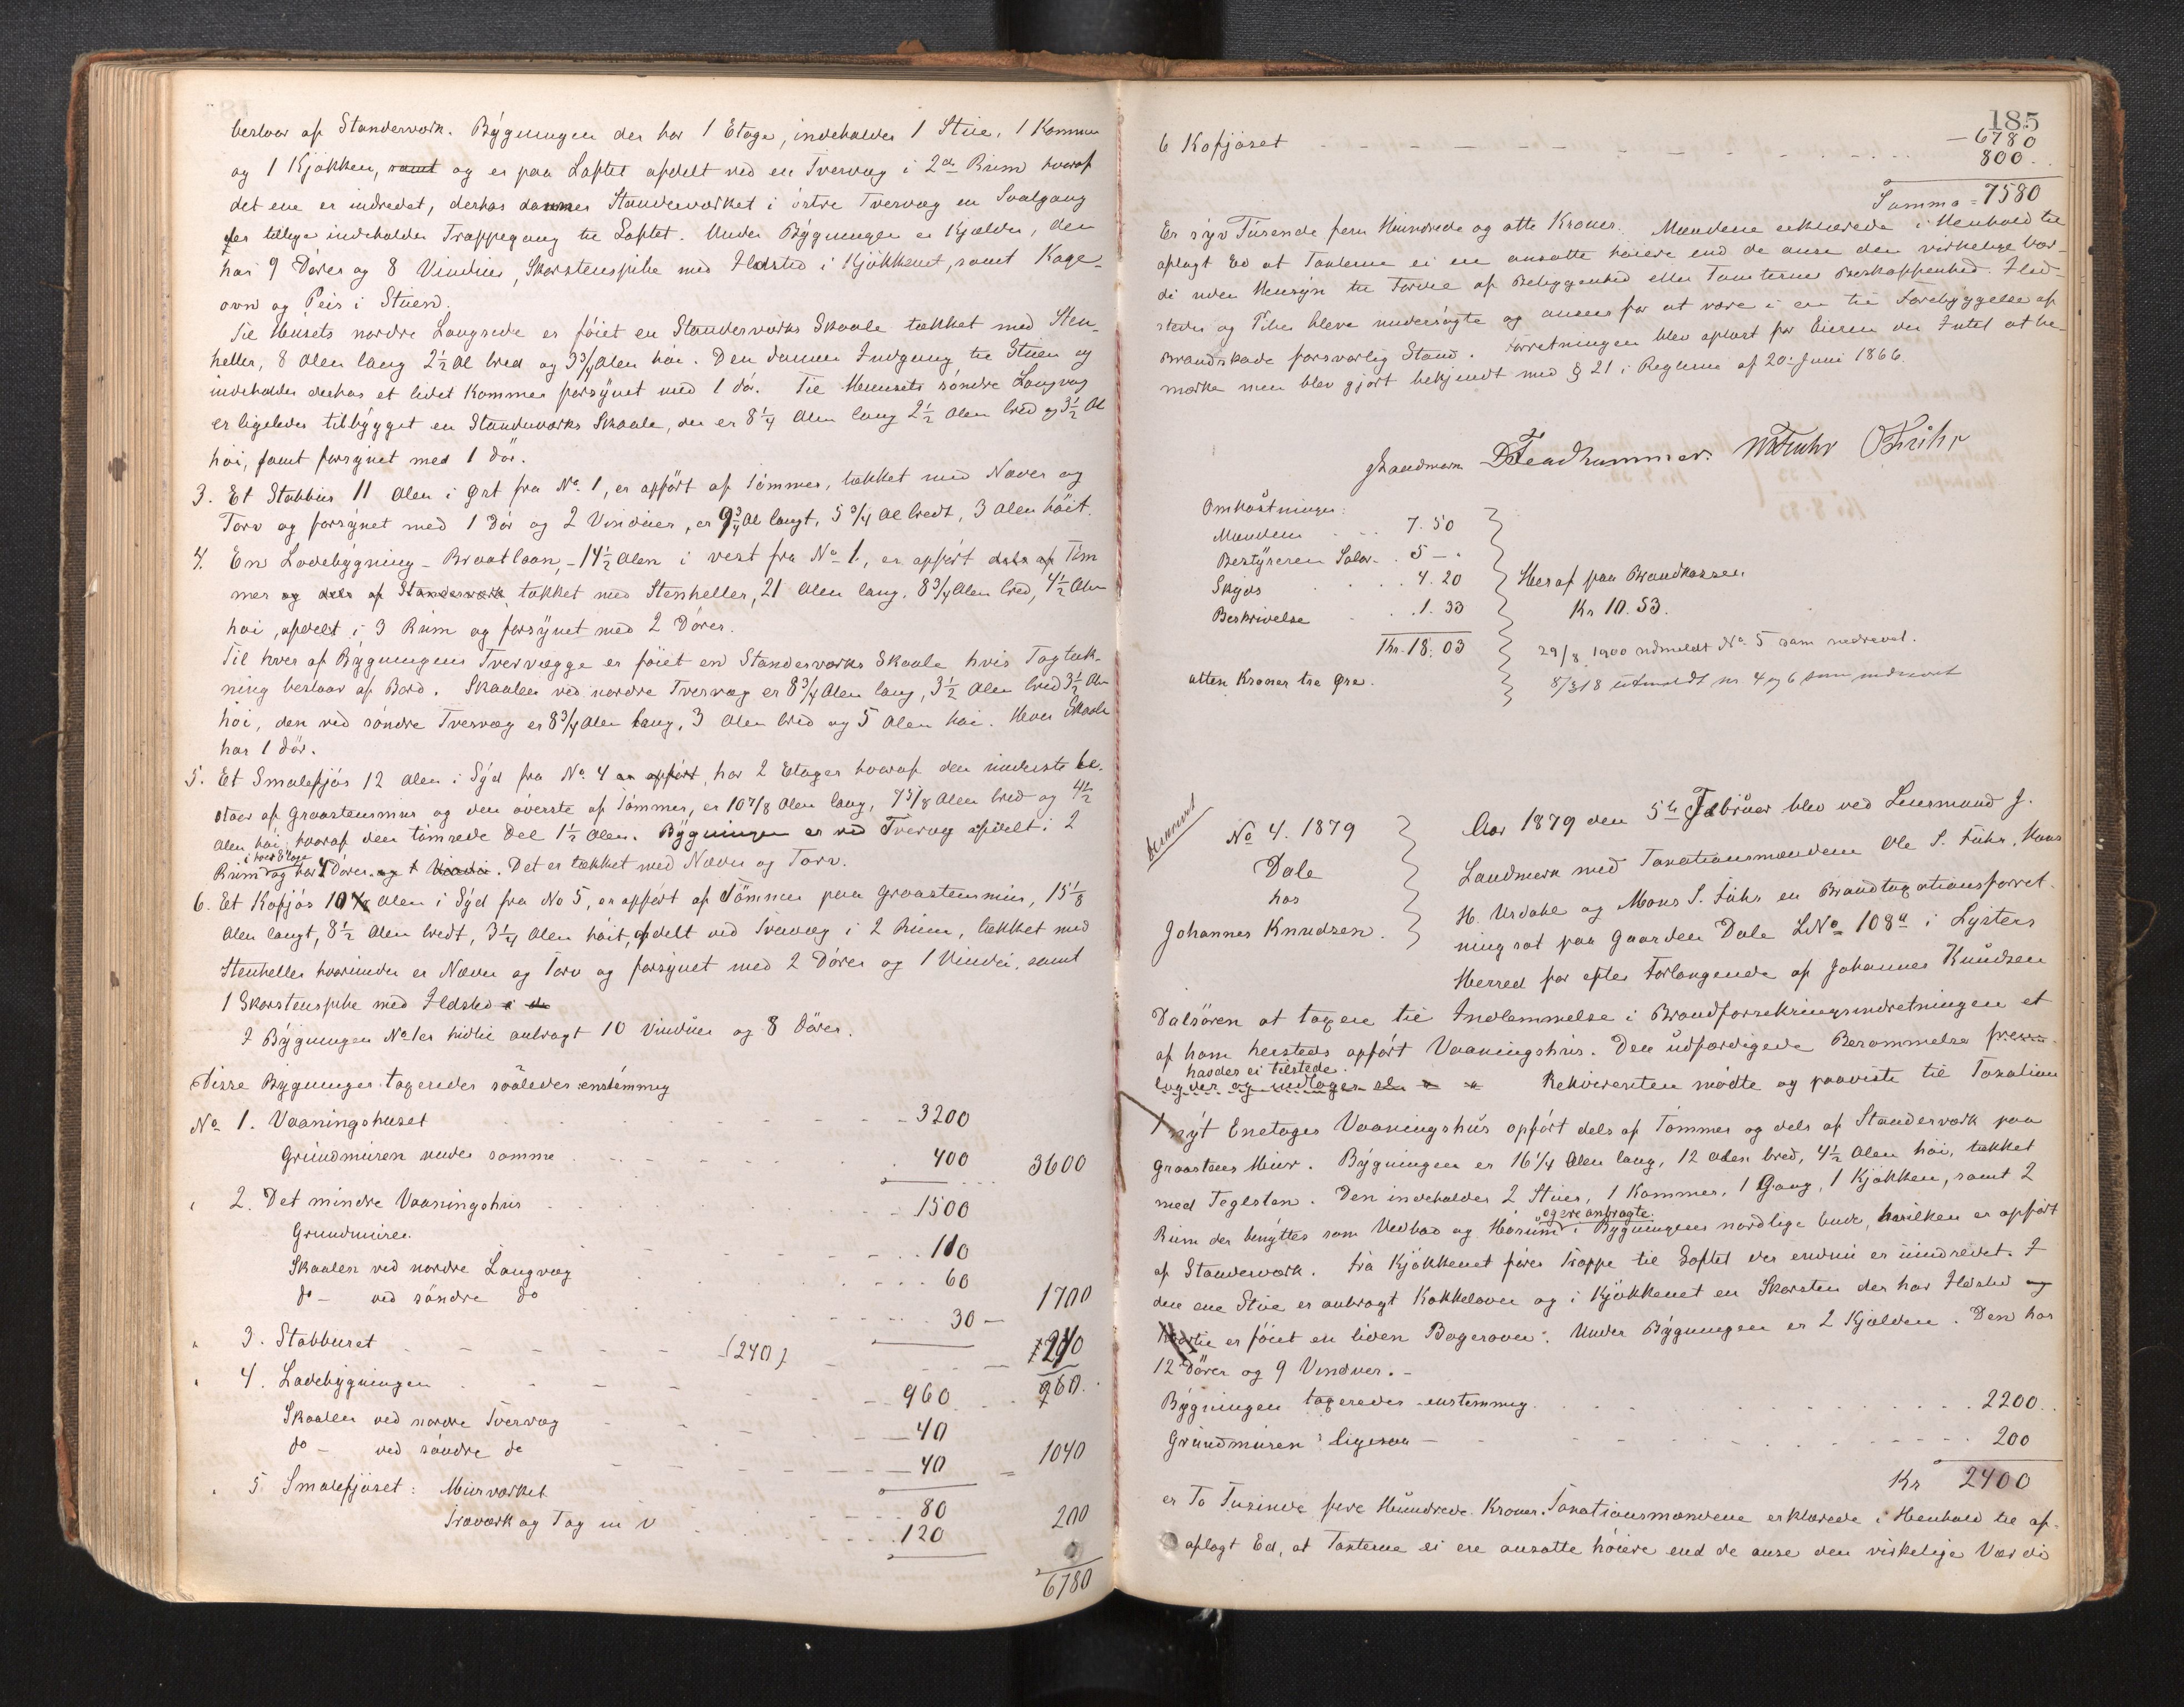 bestaar af Standerværk. Bygningen der har 1 Etage, indeholder 1 Stue, 1 Kammer
og 1 Kjøkken, samt og er paa Loftet afdelt ved en Tvervæg i 2de Rum hvoraf
det ene er indredet, derhos danner Standerværket i østre Tvervæg en Svalgang
der tillige indeholder Trappegang til Loftet. Under Bygningen er Kjælder, den
har 9 Døre og 8 Vinduer, Skorstenspibe med Ildsted i Kjøkkenet, samt Kage-
ovn og Peis i Stuen.
Til Husets nordre Langside er føiet en Standerværks Skaale tækket med Sten-
heller, 8 Alen lang 2½ Al bred og 3¾ Alen høi. Den danner Indgang til Stuen og
indeholder derhos et lidet Kammer forsynet med 1 dør. Til Husets søndre Langvæg
er ligeledes tilbygget en Standerværks Skaale, der er 8¼ Alen lang 2½ Alen bred og 3½ Al
høi, samt forsynet med 1 dør.
3. Et Stabbur 11 Alen i Øst fra No. 1, er opført af Tømmer, tækket med Næver og
Torv og forsynet med 1 Dør og 2 Vinduer, er 9¾ Al langt, 5¾ Al bredt, 3 Alen høit.
4. En Ladebygning - Braatlaan - 14½ Alen i vest fra No 1, er opført dels af Tøm
mer og dels af Standerværk tækket med Stenheller, 21 Alen lang, 8¾ Alen bred, 4½ Alen
høi, afdelt i 3 Rum og forsynet med 2 Døre.
Til hver af Bygningens Tvervægge er føiet en Standerværks Skaale hvis Tagtæk-
ning bestaar af Bord. Skaalen ved nordre Tvervæg er 8¾ Alen lang, 3½ Alen bred 3½ Alen
høi, den ved søndre Tvervæg er 8¾ Alen lang, 3 Alen bred og 5 Alen høi. Hver Skaale
har 1 dør.
5. Et Smalefjøs 12 Alen i Syd fra No. 4 er opført, har 2 Etager hvoraf den underste be-
staar af Graastensmur og den øverste af Tømmer, er 10 7/8 Alen lang, 7 5/8 Alen bred og 4½
Alen høi, hvoraf den tømrede Del 1½ Alen. Bygningen er ved Tvervæg afdelt i 2
i hver Etage
Rum og har 4 Døre og 1 Vindu. Det er tækket med Næver og Torv.
6. Et Kofjøs 10 Alen i Syd fra No 5, er opført af Tømmer paa Graastensmur, 15 1/8
Alen langt, 8½ Alen bredt, 3¼ Alen høit, afdelt ved Tvervæg i 2 Rum, tækket med
Stenheller hvorunder er Næver og Torv og forsynet med 2 Døre og 1 Vindu, samt
1 Skorstenspibe med Ildsted i de
I Bygningen No 1 er hidtil anbragt 10 Vinduer og 8 Døre.
Disse Bygninger taxeredes saaledes enstemmig
No 1. Vaaningshuset 3200
Grundmuren under samme 400 3600
" 2. Det mindre Vaaningshus 1500
Grundmuren 110
Skaalen ved nordre Langvæg 60
do - ved søndre do 30 - 1700
" 3. Stabburet (240) 240
" 4. Ladebygningen 960 960.
Skaalen ved nordre Tvervæg 40
do - ved søndre do 40 1040
" 5 Smalefjøset: Murværket 80
Træværk og Tag m v 120 200
6780
185
6780
6 Kofjøset 800
Summa = 7580
Er syv Tusende fem Hundrede og otte Kroner. Mændene erklærede i Henhold til
aflagt Ed at Taxterne ei ere ansatte høiere end de anse den virkelige Vær-
di uden Hensyn til Fordel af Beliggenhed eller Tomternes Beskaffenhed. Ild-
steder og Piber bleve undersøgte og ansees for at være i en til Forebyggelse af
Brandskade forsvarlig Stand. Forretningen blev oplæst for Eieren der Intet at be-
mærke men blev gjort bekjendt med § 21 i Reglerne af 20. Juni 1866.
JLandmark MFuhr OFuhr
Omkostninger:
Mændene 7.50
Bestyreren Salær 5 -
Skyds 4.20
Beskrivelse 1.33
Thr. 18.03
atten Kroner tre Øre.
Heraf paa Brandkassen
Kr 10.53.
29/8 1900 udmeldt No 5 som nedrevet.
8/3 18 utmeldt nr 4 og 6 som nedrevet
No 4. 1879
Dale
hos
Johannes Knudsen.
Aar 1879 den 5te Februar blev ved Lensmand J.
Landmark med Taxationsmændene Ole S. Fuhr, Hans
H. Urdahl og Mons S. Fuhr en Brandtaxationsforret-
ning sat paa Gaarden Dale LNo 108a i Lysters
Herred for efter Forlangende af Johannes Knudsen
Dalsøren at taxere til Indlemmelse i Brandforsikringsindretningen et
af ham hersteds opført Vaaningshus. Den udfærdigede Berammelse frem-
havdes ei tilstede.
lagdes og indtages Rekvirenten mødte og paaviste til Taxation
1 nyt Enetages Vaaningshus opført dels af Tømmer og dels af Standerværk paa
Graastens Muur. Bygningen er 16¼ Alen lang, 12 Alen bred, 4½ Alen høi, tækket
med Teglsten. Den indeholder 2 Stuer, 1 Kammer, 1 Gang, 1 Kjøkken, samt 2
og ere anbragte
Rum der benyttes som Vedbod og Hørum i Bygningens nordlige Ende, hvilken er opført
af Standerværk. Fra Kjøkkenet fører Trappe til Loftet der endnu er uindredet. I
den ene Stue er anbragt Kakkelovn og i Kjøkkenet en Skorsten der har Ildsted og
hvortil er føiet en liden Bagerovn. Under Bygningen er 2 Kjældere. Den har
12 Døre og 9 Vinduer. -
Bygningen taxeredes enstemmig 2200
Grundmuren ligesaa 200
Kr 2400
er To Tusinde fire Hundrede Kroner. Taxationsmændene erklærede i Henhold til af-
aflagt Ed, at Taxterne ei ere ansatte høiere end de anse den virkelige Værdi